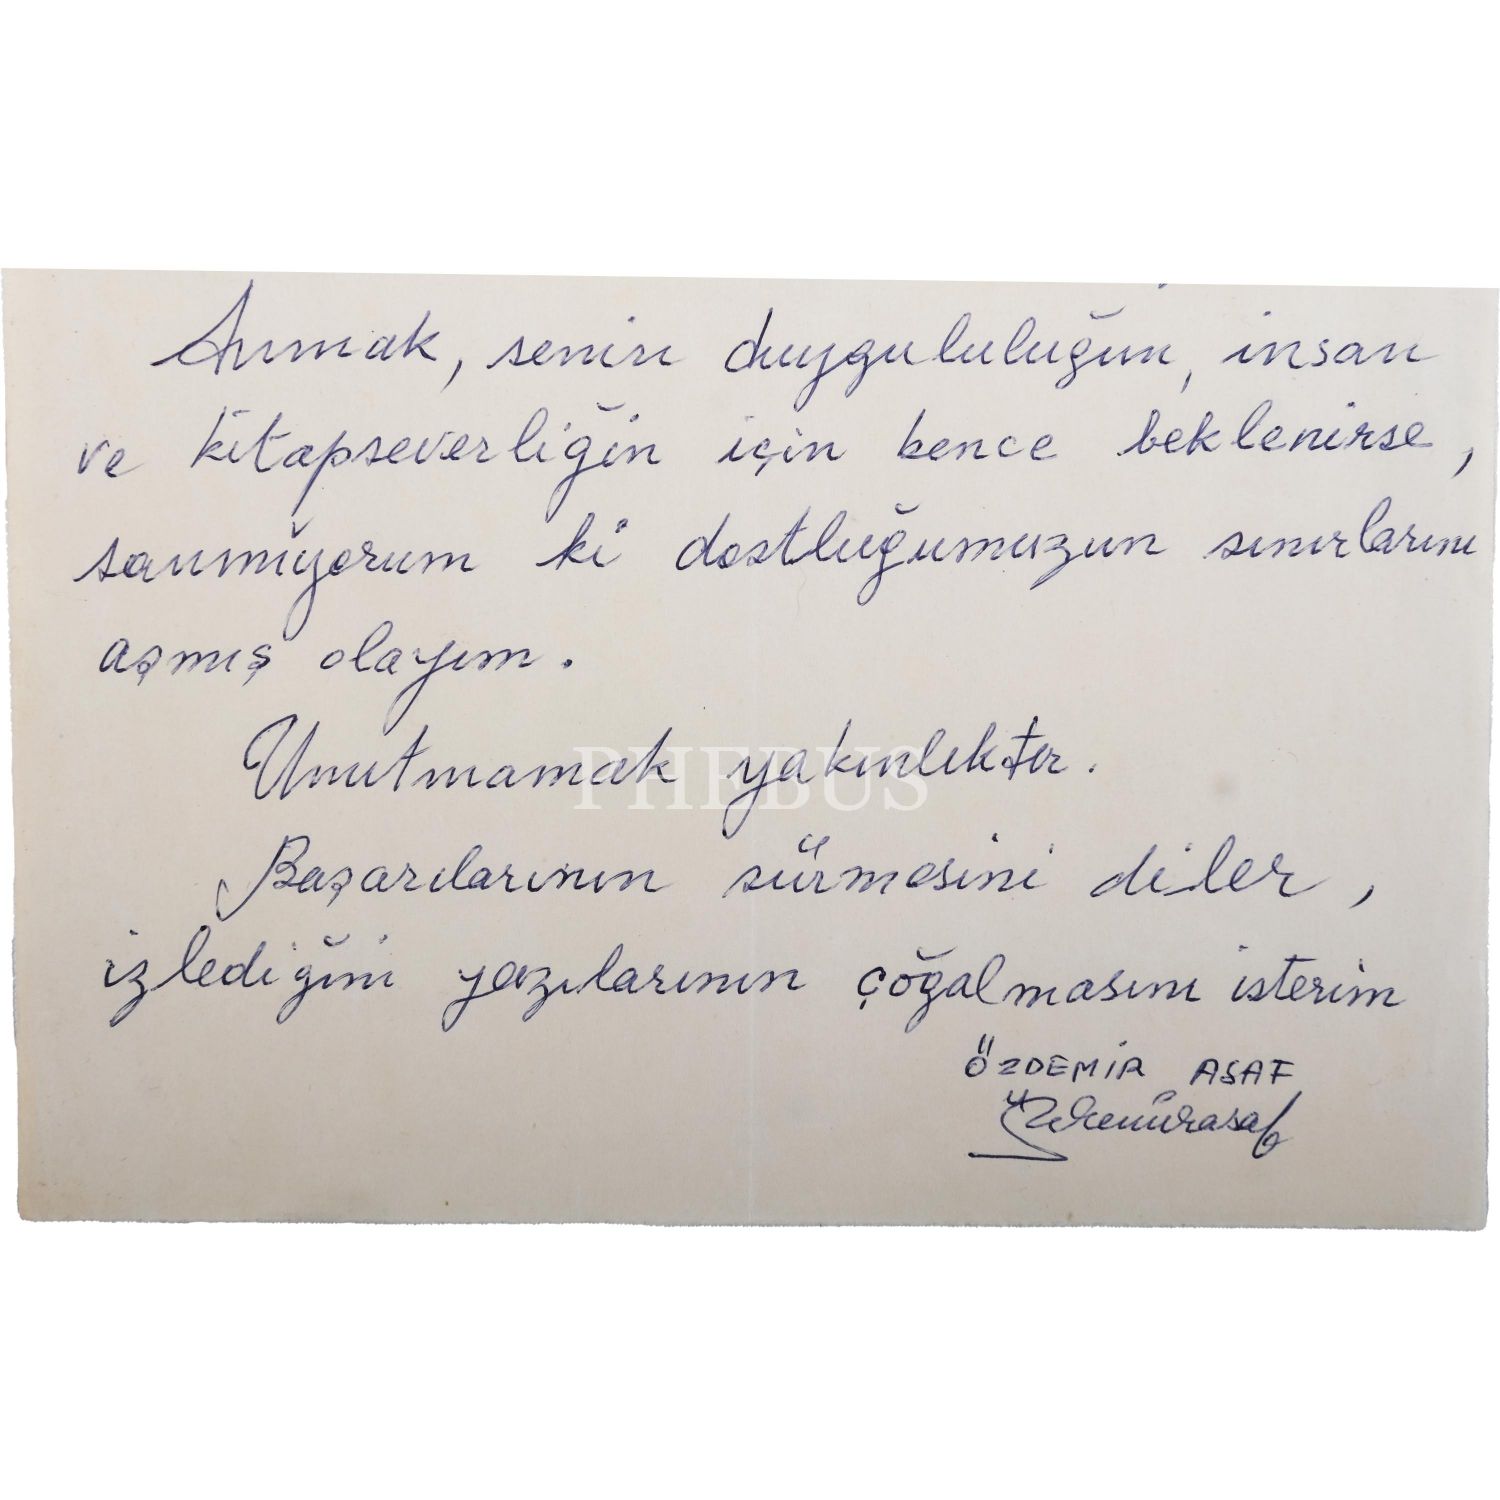 Anmak, senin duygululuğun, insan
ve kitapseverliğin için bence beklenirse,
sanmıyorum ki dostluğumuzun sınırlarını
aşmış olayım.
Unutmamak yakınlıktır.
PHEBUS
Başarılarının sürmesini diler,
izlediğini yazılarının çoğalmasını isterim
ÖZDEMİR ASAF
Özdemirasaf